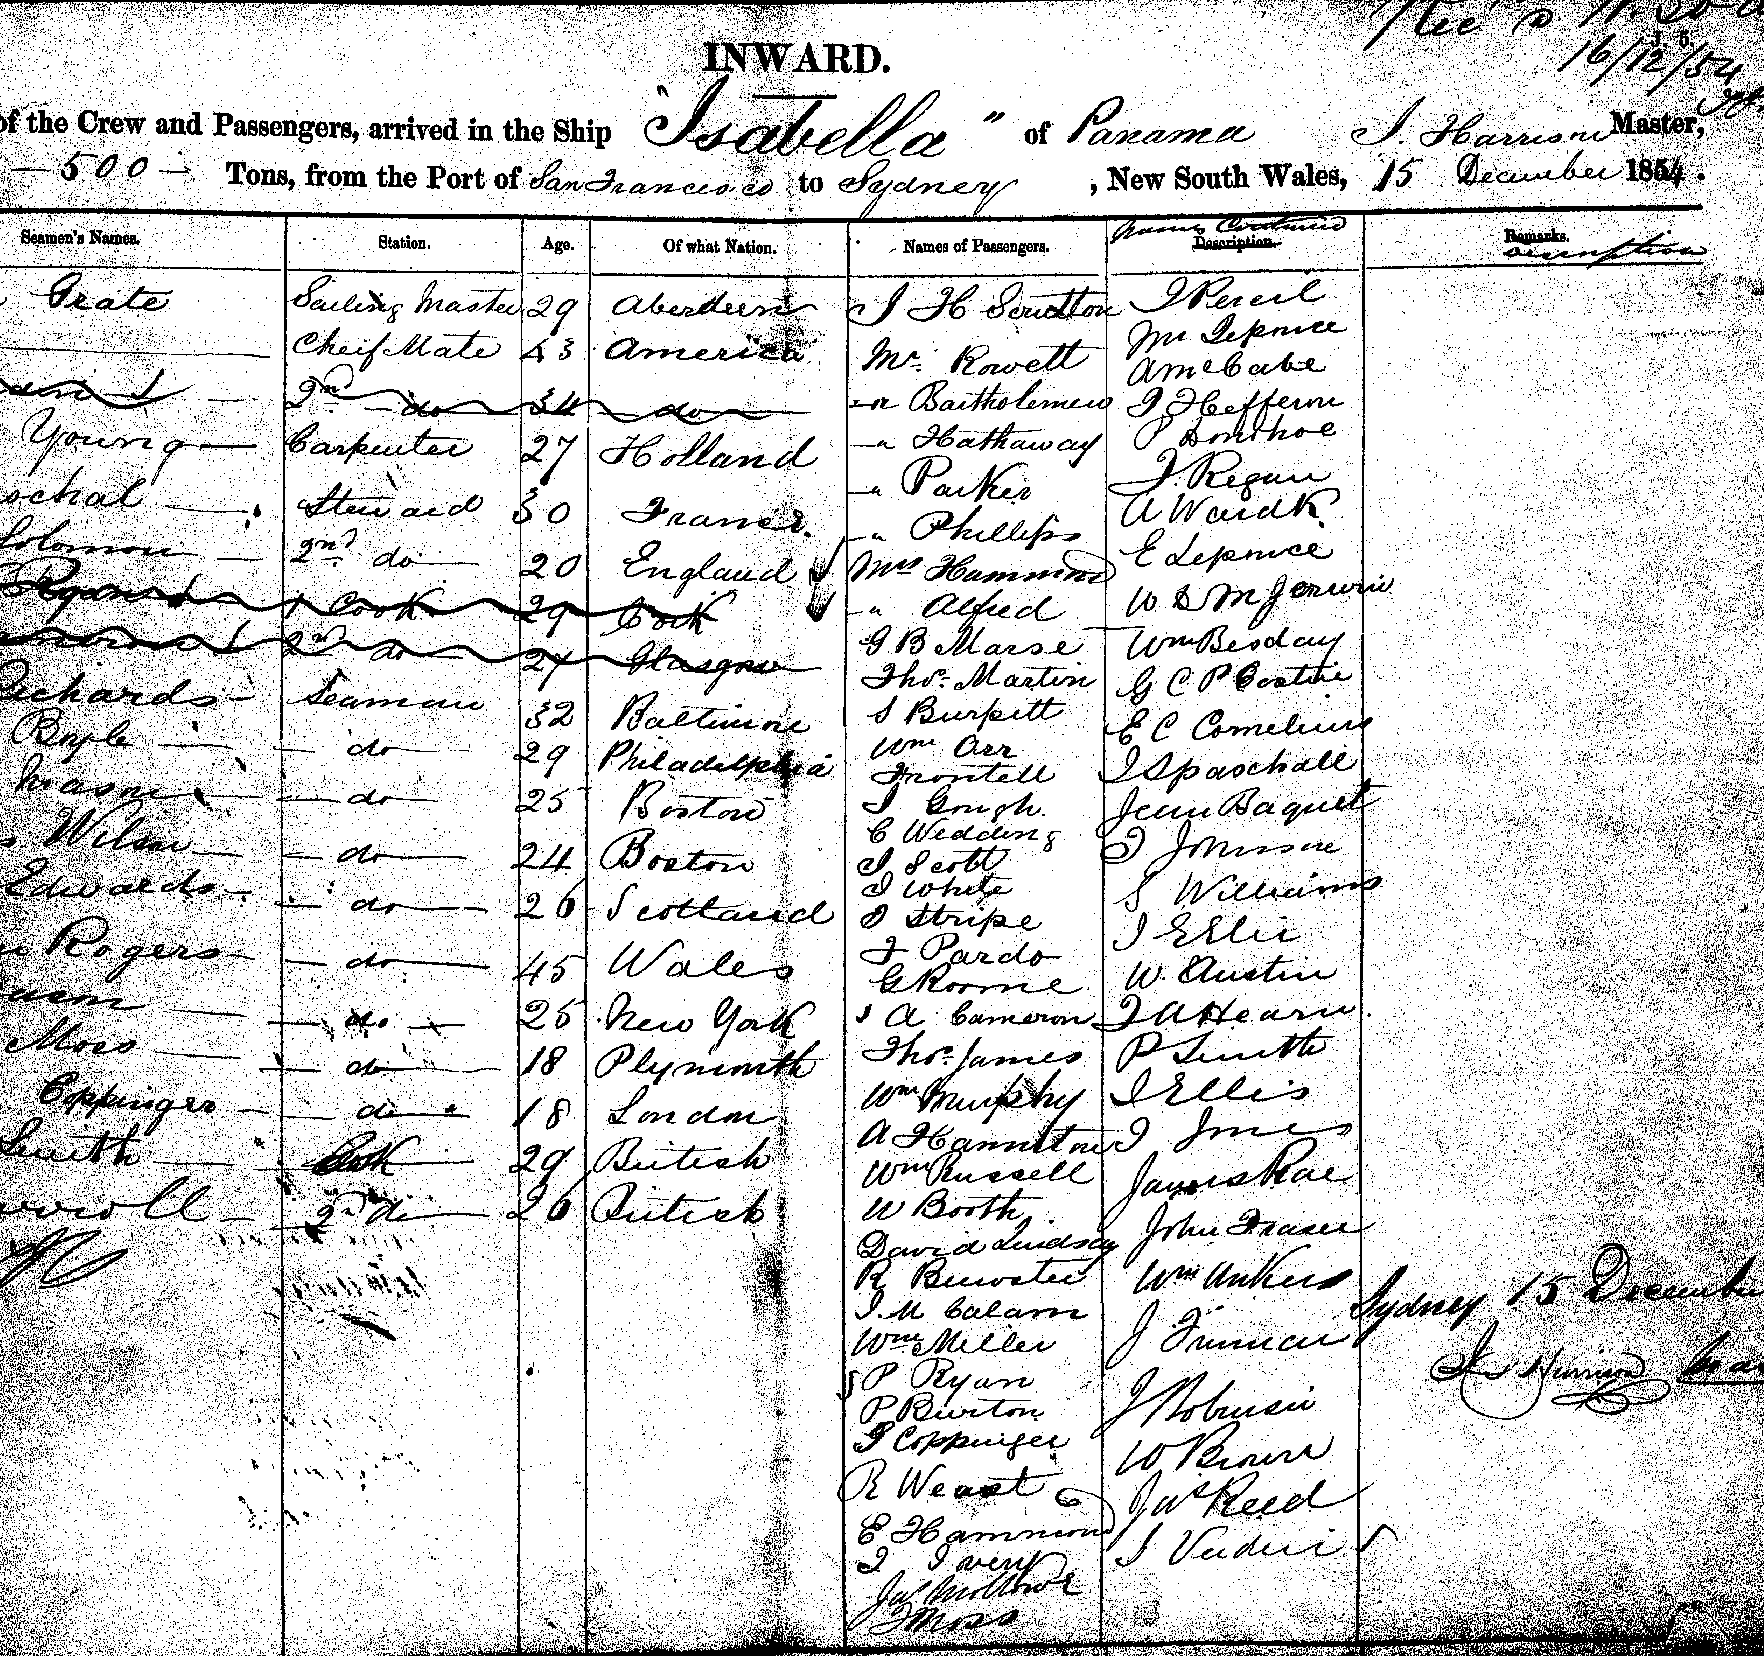 INWARD.
16/12/54
of the Crew and Passengers, arrived in the Ship "Isabella" of Panama J. Harrison Master,
500 Tons, from the Port of San Francisco to Sydney , New South Wales, 15 December 1854.
Seamen's Names. Station. Age. Of what Nation. Names of Passengers. Names Continued Description. Remarks. Description
Grate Sailing Master 29 Aberdeen J H Scrutton J Perceil
Cheif Mate 43 America Mr. Rowett Mr Leprince
2nd do 34 do " Bartholemew A McCabe
Young Carpenter 27 Holland " Hathaway J Hefferon
schal Steward 30 France. " Parker P Donohoe
Solomon 2nd do 20 England " Phillips J. Regan
Cook 29 Cork Mrs Hammond A Wardk
2nd do 27 Glasgow " Alfred E Leprince
Richards Seaman 32 Baltimore G B Marse W & M Jerwin
Boyle do 29 Philadelphia Thos. Martin Wm Besday
Mason do 25 Boston S Burpitt G C P Costine
Wilson do 24 Boston Wm Orr E C Cornelius
Edwards do 26 Scotland Frontell J S paschall
Rogers do 45 Wales J Gough Jean Baquet
do 25 New York C Wedding J Johnson
Moss do 18 Plymouth J Scott S Williams
Coppinger do 18 London J White J Ellis
Smith Cook 29 British J Stripe W. Austin
2nd do 26 British F Pardo J A Hearn
G Roome P Smith
A Cameron J Ellis
Thos. James J Jones
Wm Murphy James Rae
A Hamilton John Fraser
Wm Russell Wm
W Booth J
David Lindsay J Robinson
R Brewster W Brown
J. M Calam Jas Reed
Wm Miller J
P Ryan
P Burton
J Coppinger
R Weast
E Hammond
J Ivery
Jas
J Moss
Sydney 15 December
J. Harrison